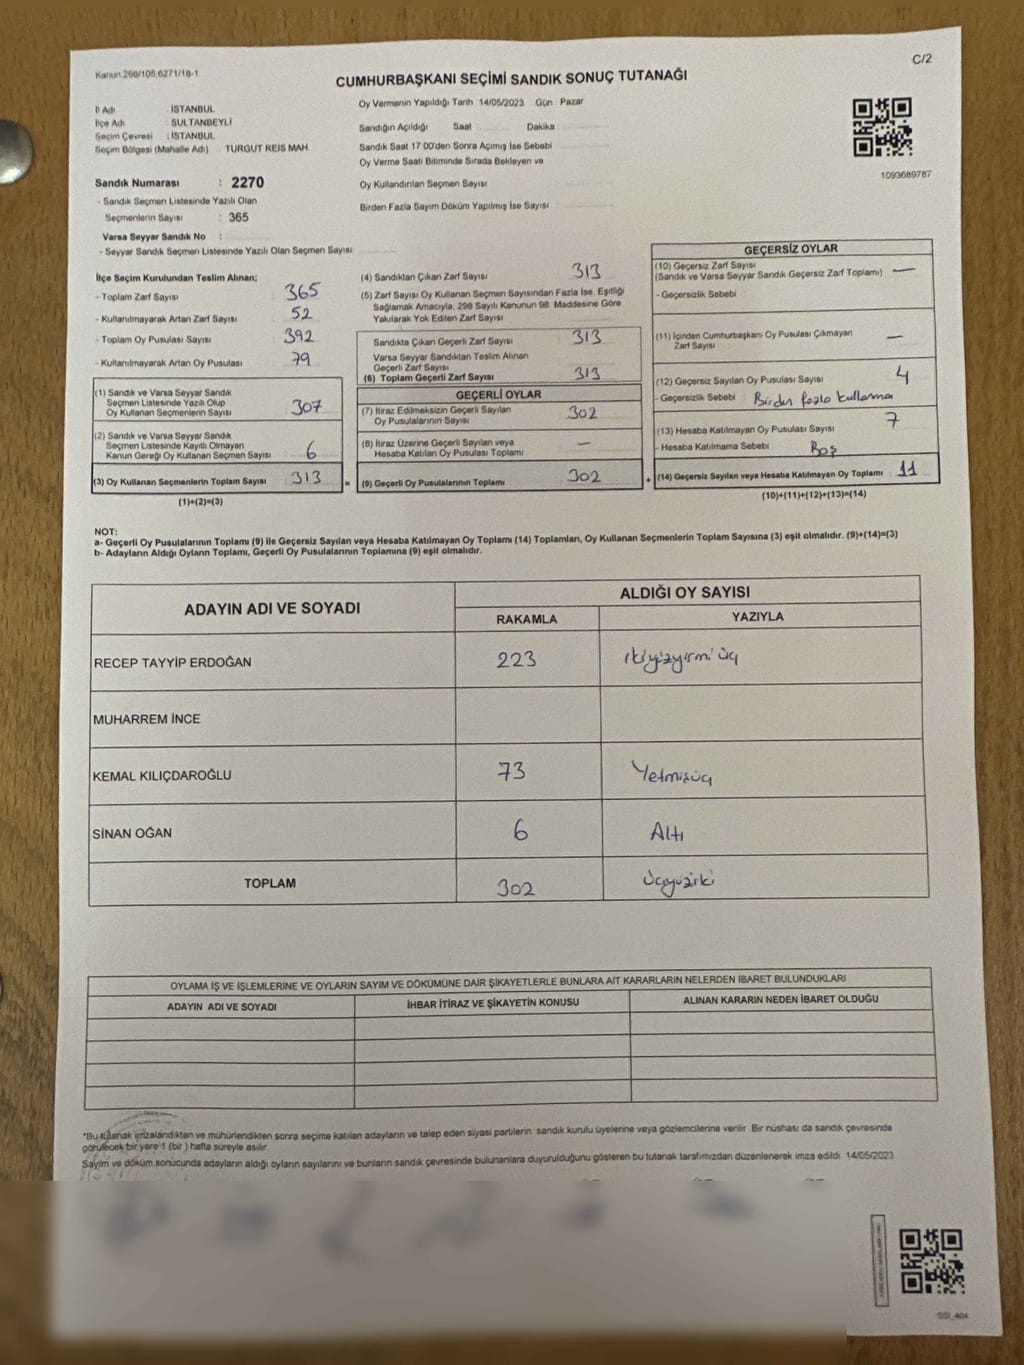 Kanun 298/105,6271/16-1
C/2
CUMHURBAŞKANI SEÇİMİ SANDIK SONUÇ TUTANAĞI
İl Adı : İSTANBUL
İlçe Adı : SULTANBEYLİ
Seçim Çevresi : İSTANBUL
Seçim Bölgesi (Mahalle Adı) : TURGUT REIS MAH.
Sandık Numarası : 2270
- Sandık Seçmen Listesinde Yazılı Olan
Seçmenlerin Sayısı : 365
Varsa Seyyar Sandık No :
- Seyyar Sandık Seçmen Listesinde Yazılı Olan Seçmen Sayısı
Oy Vermenin Yapıldığı Tarih 14/05/2023 Gün Pazar
Sandığın Açıldığı Saat Dakika
Sandık Saat 17.00'den Sonra Açımış İse Sebebi
Oy Verme Saati Bitiminde Sırada Bekleyen ve
Oy Kullandırılan Seçmen Sayısı
Birden Fazla Sayım Döküm Yapılmış İse Sayısı
1093689787
İlçe Seçim Kurulundan Teslim Alınan;
- Toplam Zarf Sayısı 365
- Kullanılmayarak Artan Zarf Sayısı 52
- Toplam Oy Pusulası Sayısı 392
- Kullanılmayarak Artan Oy Pusulası 79
(1) Sandık ve Varsa Seyyar Sandık
Seçmen Listesinde Yazılı Olup
Oy Kullanan Seçmenlerin Sayısı 307
(2) Sandık ve Varsa Seyyar Sandık
Seçmen Listesinde Kayıtlı Olmayan
Kanun Gereği Oy Kullanan Seçmen Sayısı 6
(3) Oy Kullanan Seçmenlerin Toplam Sayısı 313 =
(1)+(2)=(3)
(4) Sandıktan Çıkan Zarf Sayısı 313
(5) Zarf Sayısı Oy Kullanan Seçmen Sayısından Fazla İse, Eşitliği
Sağlamak Amacıyla, 298 Sayılı Kanunun 98. Maddesine Göre
Yakılarak Yok Edilen Zarf Sayısı
Sandıkta Çıkan Geçerli Zarf Sayısı 313
Varsa Seyyar Sandıktan Teslim Alınan
Geçerli Zarf Sayısı
(6) Toplam Geçerli Zarf Sayısı 313
GEÇERLİ OYLAR
(7) İtiraz Edilmeksizin Geçerli Sayılan
Oy Pusulalarının Sayısı 302
(8) İtiraz Üzerine Geçerli Sayılan veya
Hesaba Katılan Oy Pusulası Toplamı —
(9) Geçerli Oy Pusulalarının Toplamı 302 +
GEÇERSİZ OYLAR
(10) Geçersiz Zarf Sayısı
(Sandık ve Varsa Seyyar Sandık Geçersiz Zarf Toplamı) —
- Geçersizlik Sebebi
(11) İçinden Cumhurbaşkanı Oy Pusulası Çıkmayan
Zarf Sayısı —
(12) Geçersiz Sayılan Oy Pusulası Sayısı 4
- Geçersizlik Sebebi Birden fazla kullanma
(13) Hesaba Katılmayan Oy Pusulası Sayısı 7
- Hesaba Katılmama Sebebi Boş
(14) Geçersiz Sayılan veya Hesaba Katılmayan Oy Toplamı 11
(10)+(11)+(12)+(13)=(14)
NOT:
a- Geçerli Oy Pusulalarının Toplamı (9) ile Geçersiz Sayılan veya Hesaba Katılmayan Oy Toplamı (14) Toplamları, Oy Kullanan Seçmenlerin Toplam Sayısına (3) eşit olmalıdır. (9)+(14)=(3)
b- Adayların Aldığı Oyların Toplamı, Geçerli Oy Pusulalarının Toplamına (9) eşit olmalıdır.
ADAYIN ADI VE SOYADI ALDIĞI OY SAYISI
RAKAMLA YAZIYLA
RECEP TAYYİP ERDOĞAN 223 ikiyüzyirmi üç
MUHARREM İNCE
KEMAL KILIÇDAROĞLU 73 Yetmişüç
SİNAN OĞAN 6 Altı
TOPLAM 302 üçyüziki
OYLAMA İŞ VE İŞLEMLERİNE VE OYLARIN SAYIM VE DÖKÜMÜNE DAİR ŞİKAYETLERLE BUNLARA AİT KARARLARIN NELERDEN İBARET BULUNDUKLARI
ADAYIN ADI VE SOYADI İHBAR İTİRAZ VE ŞİKAYETİN KONUSU ALINAN KARARIN NEDEN İBARET OLDUĞU
*Bu tutanak imzalandıktan ve mühürlendikten sonra seçime katılan adayların ve talep eden siyasi partilerin sandık kurulu üyelerine veya gözlemcilerine verilir. Bir nüshası da sandık çevresinde
görülecek bir yere 1 (bir) hafta süreyle asılır.
Sayım ve döküm sonucunda adayların aldığı oyların sayılarını ve bunların sandık çevresinde bulunanlara duyurulduğunu gösteren bu tutanak tarafımızdan düzenlenerek imza edildi. 14/05/2023